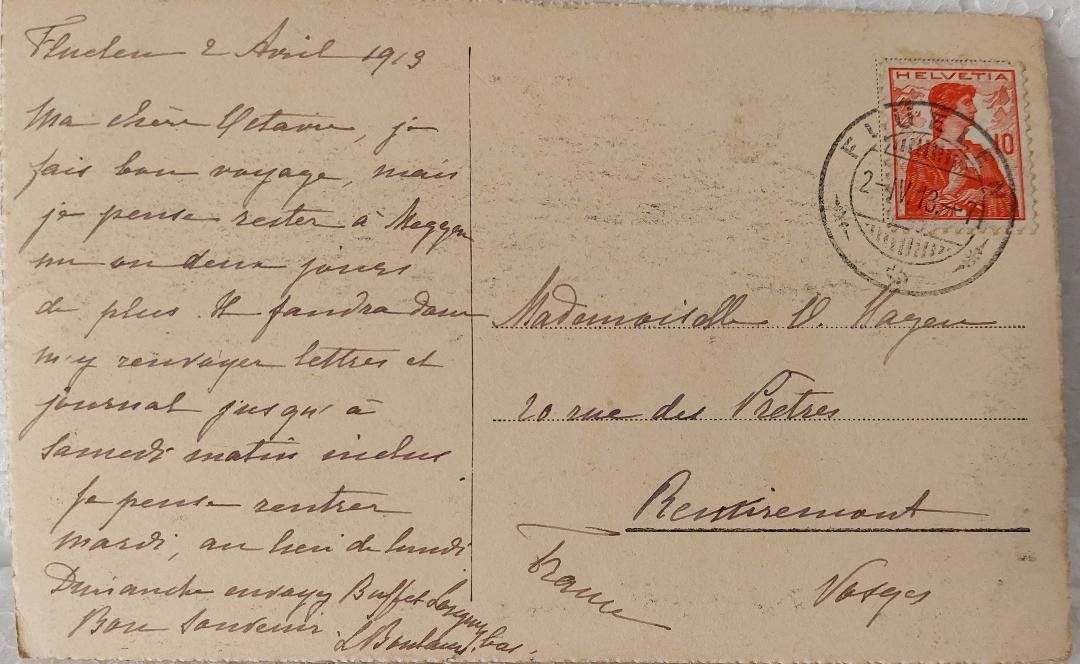 Fluelen 2 Avril 1913
Ma chère Octavie, je
fais bon voyage, mais
je pense rester à Meggen
un ou deux jours
de plus. Il faudra donc
m'y renvoyer lettres et
journal jusqu'à
samedi matin inclus
Je pense rentrer
mardi, au lieu de lundi
Dimanche envoyez Buffet
Bon souvenir
HELVETIA
10
FLUELEN
2-IV 13
Mademoiselle O. Hagen
20 rue des Pretres
Remiremont
France
Vosges